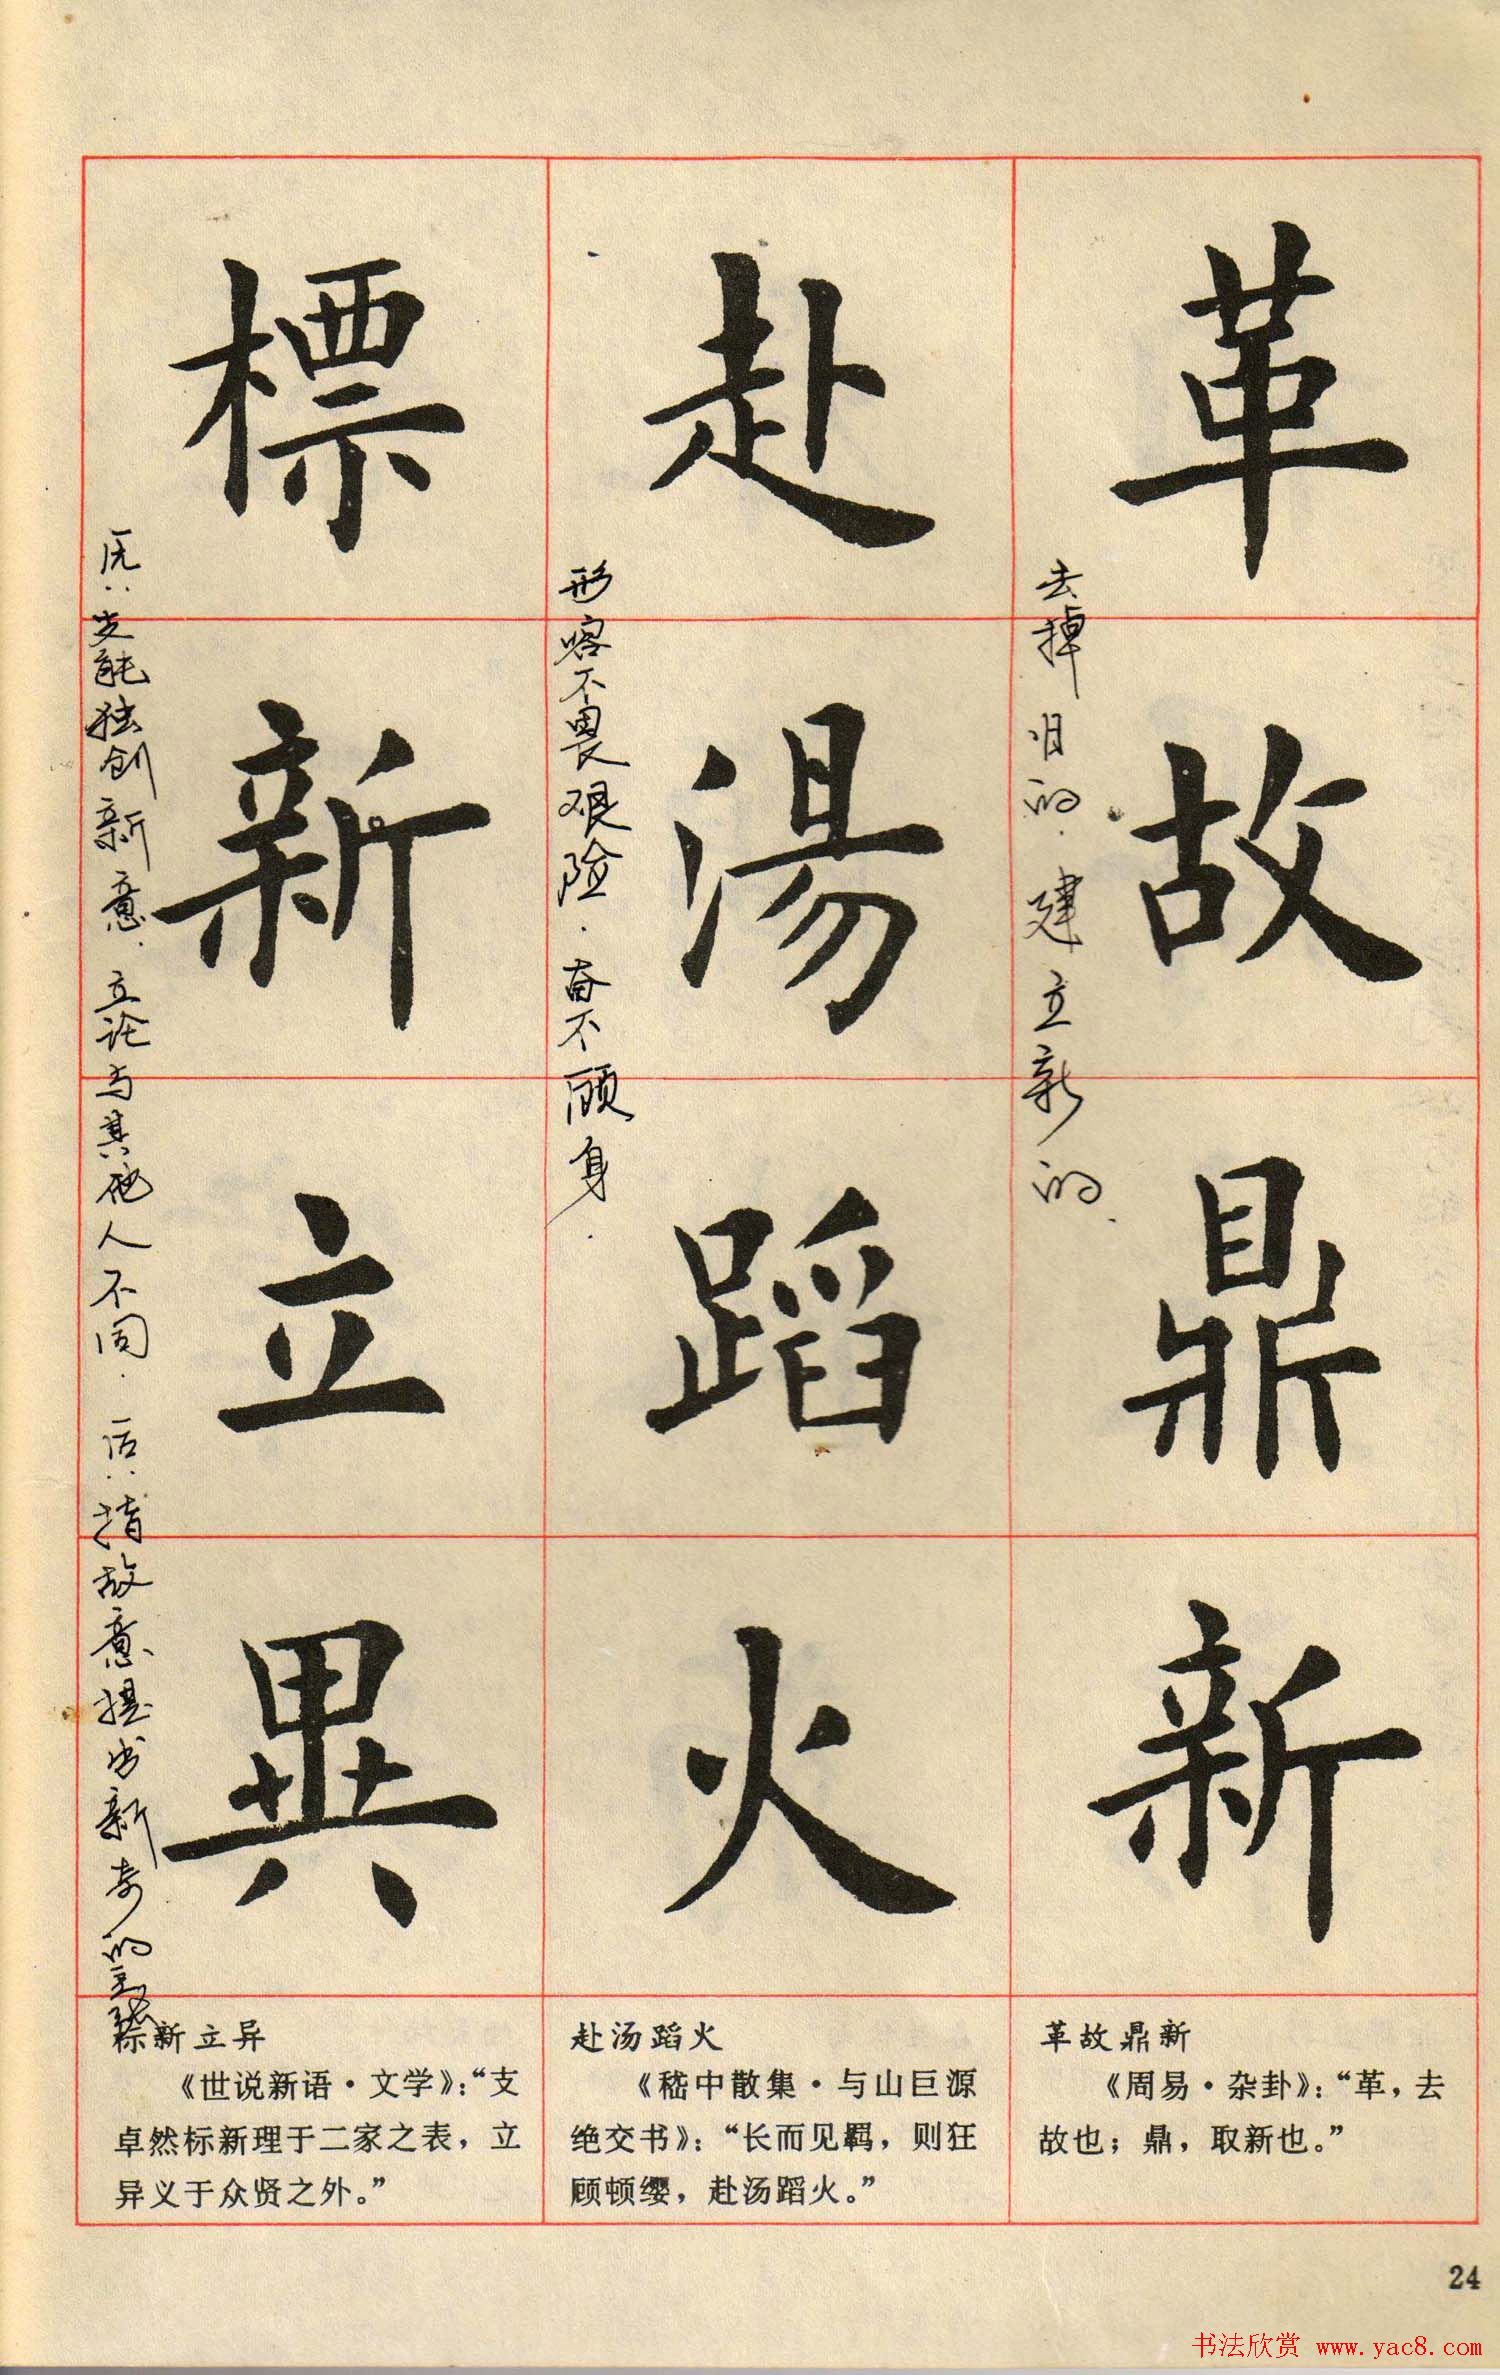 革故鼎新
去掉旧的.建立新的.
赴湯蹈火
形容不畏艰险.奋不顾身.
標新立異
原:支能独创新意.立论与其他人不同.后:指故意提出新奇的主张
革故鼎新
《周易·杂卦》:“革,去
故也;鼎,取新也。”
赴汤蹈火
《嵇中散集·与山巨源
绝交书》:“长而见羁,则狂
顾顿缨,赴汤蹈火。”
标新立异
《世说新语·文学》:“支
卓然标新理于二家之表,立
异义于众贤之外。”
24
书法欣赏 www.yac8.com